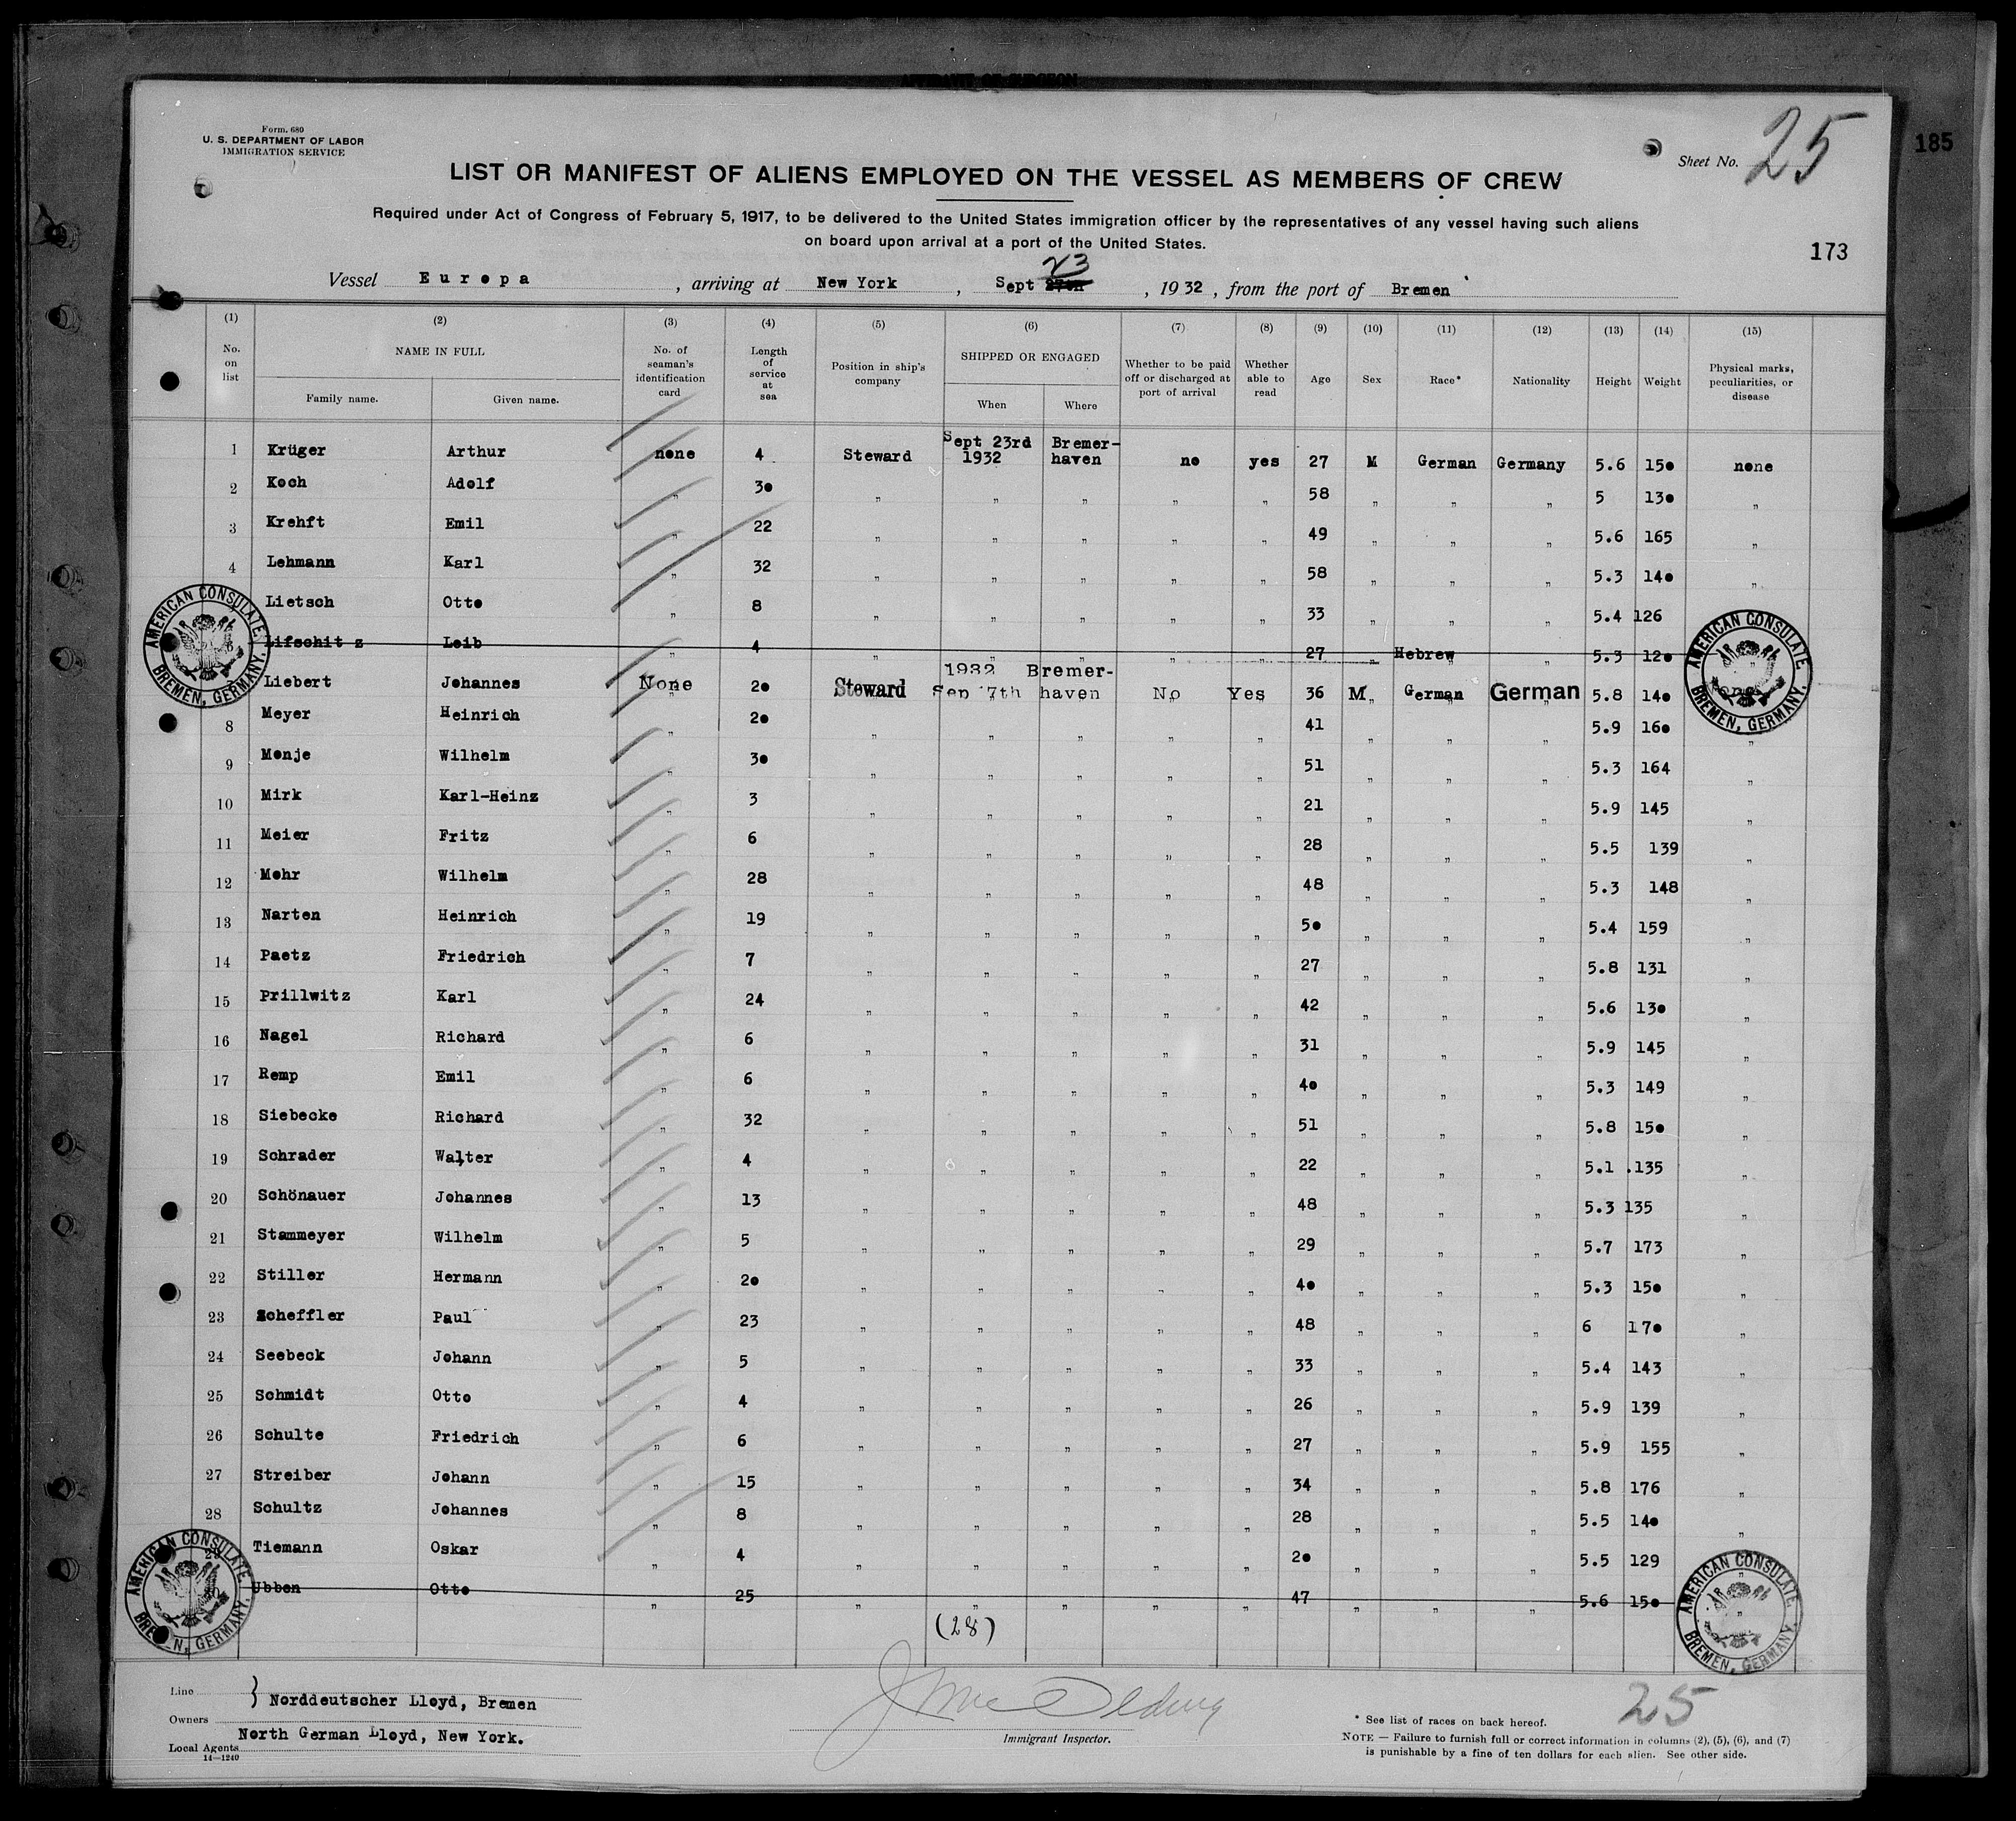 185
Form. 680
U. S. DEPARTMENT OF LABOR
IMMIGRATION SERVICE
Sheet No. 25
LIST OR MANIFEST OF ALIENS EMPLOYED ON THE VESSEL AS MEMBERS OF CREW
Required under Act of Congress of February 5, 1917, to be delivered to the United States immigration officer by the representatives of any vessel having such aliens
on board upon arrival at a port of the United States.
173
Vessel Europa, arriving at New York, Sept 27th 23, 1932, from the port of Bremen
(1) (2) (3) (4) (5) (6) (7) (8) (9) (10) (11) (12) (13) (14) (15)
No. on list
NAME IN FULL
Family name. Given name.
No. of seaman's identification card
Length of service at sea
Position in ship's company
SHIPPED OR ENGAGED
When Where
Whether to be paid off or discharged at port of arrival
Whether able to read
Age
Sex
Race*
Nationality
Height
Weight
Physical marks, peculiarities, or disease
1 Krüger Arthur none 4 Steward Sept 23rd 1932 Bremer-haven no yes 27 M German Germany 5.6 150 none
2 Koch Adolf " 30 " " " " " 58 " " " 5 130 "
3 Krehft Emil " 22 " " " " " 49 " " " 5.6 165 "
4 Lehmann Karl " 32 " " " " " 58 " " " 5.3 140 "
Lietsch Otto " 8 " " " " " 33 " " " 5.4 126
6 Lifschitz Leib " 4 " " " " " 27 " Hebrew " 5.3 120
Liebert Johannes None 20 Steward 1932 Sep 7th Bremer-haven No Yes 36 M. German German 5.8 140 None
8 Meyer Heinrich " 20 " " " " " 41 " " " 5.9 160 "
9 Monje Wilhelm " 30 " " " " " 51 " " " 5.3 164 "
10 Mirk Karl-Heinz " 3 " " " " " 21 " " " 5.9 145 "
11 Meier Fritz " 6 " " " " " 28 " " " 5.5 139 "
12 Mohr Wilhelm " 28 " " " " " 48 " " " 5.3 148 "
13 Narten Heinrich " 19 " " " " " 50 " " " 5.4 159 "
14 Paetz Friedrich " 7 " " " " " 27 " " " 5.8 131 "
15 Prillwitz Karl " 24 " " " " " 42 " " " 5.6 130 "
16 Nagel Richard " 6 " " " " " 31 " " " 5.9 145 "
17 Remp Emil " 6 " " " " " 40 " " " 5.3 149 "
18 Siebecke Richard " 32 " " " " " 51 " " " 5.8 150 "
19 Schrader Walter " 4 " " " " " 22 " " " 5.1 .135 "
20 Schönauer Johannes " 13 " " " " " 48 " " " 5.3 135 "
21 Stammeyer Wilhelm " 5 " " " " " 29 " " " 5.7 173 "
22 Stiller Hermann " 20 " " " " " 40 " " " 5.3 150 "
23 Scheffler Paul " 23 " " " " " 48 " " " 6 170 "
24 Seebeck Johann " 5 " " " " " 33 " " " 5.4 143 "
25 Schmidt Otto " 4 " " " " " 26 " " " 5.9 139 "
26 Schulte Friedrich " 6 " " " " " 27 " " " 5.9 155 "
27 Streiber Johann " 15 " " " " " 34 " " " 5.8 176 "
28 Schultz Johannes " 8 " " " " " 28 " " " 5.5 140 "
29 Tiemann Oskar " 4 " " " " " 20 " " " 5.5 129 "
Ubben Otto " 25 " " " " " 47 " " " 5.6 150 "
(28)
AMERICAN CONSULATE, BREMEN, GERMANY.
AMERICAN CONSULATE, BREMEN, GERMANY.
AMERICAN CONSULATE, BREMEN, GERMANY.
AMERICAN CONSULATE, BREMEN, GERMANY.
Line
Owners } Norddeutscher Lloyd, Bremen
Local Agents North German Lloyd, New York.
14—1240
Immigrant Inspector.
25
* See list of races on back hereof.
NOTE — Failure to furnish full or correct information in columns (2), (5), (6), and (7)
is punishable by a fine of ten dollars for each alien. See other side.